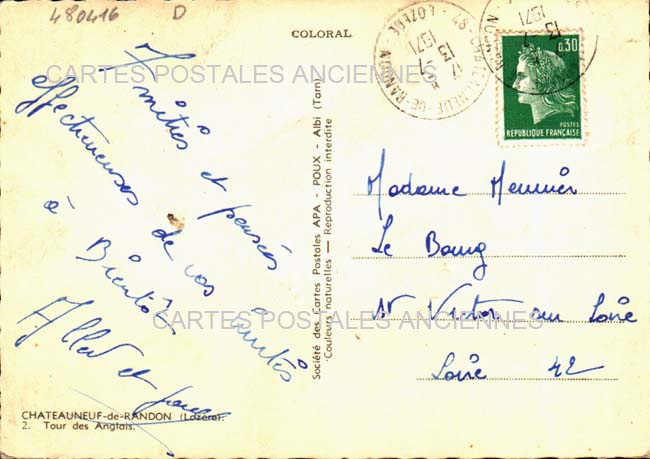 480416 D
COLORAL
CARTES POSTALES ANCIENNES
Amitiés et pensées
affectueuses de vos amies
à Bientôt
et
CHATEAUNEUF-de-RANDON (Lozère).
2. Tour des Anglais.
Société des Cartes Postales APA - POUX - Albi (Tarn)
Couleurs naturelles — Reproduction interdite
CHATEAUNEUF-DE-RANDON
LOZERE
13 -7
1971
0,30
POSTES
REPUBLIQUE FRANÇAISE
Madame Meunier
Le Bourg
St Victor sur Loire
Loire 42
CARTES POSTALES ANCIENNES